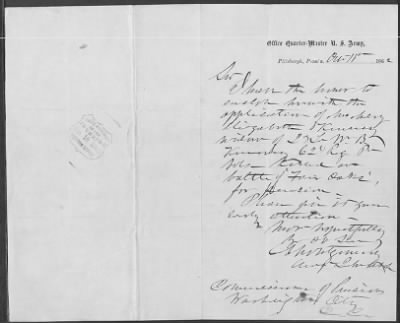 Office Quarter-Master U. S. Army,
Pittsburgh, Penn'a. Oct 15 1862
Sir
I have the honor to
enclose herewith the
application of
Elizabeth Kinsey
widow of
62d Reg Pa
Vols Killed in
battle of "Fair Oaks",
for Pension
Please give it your
early attention -
Most respectfully
Yr Ob Sev
A Montgomery
Commissioner of Pensions
Washington City